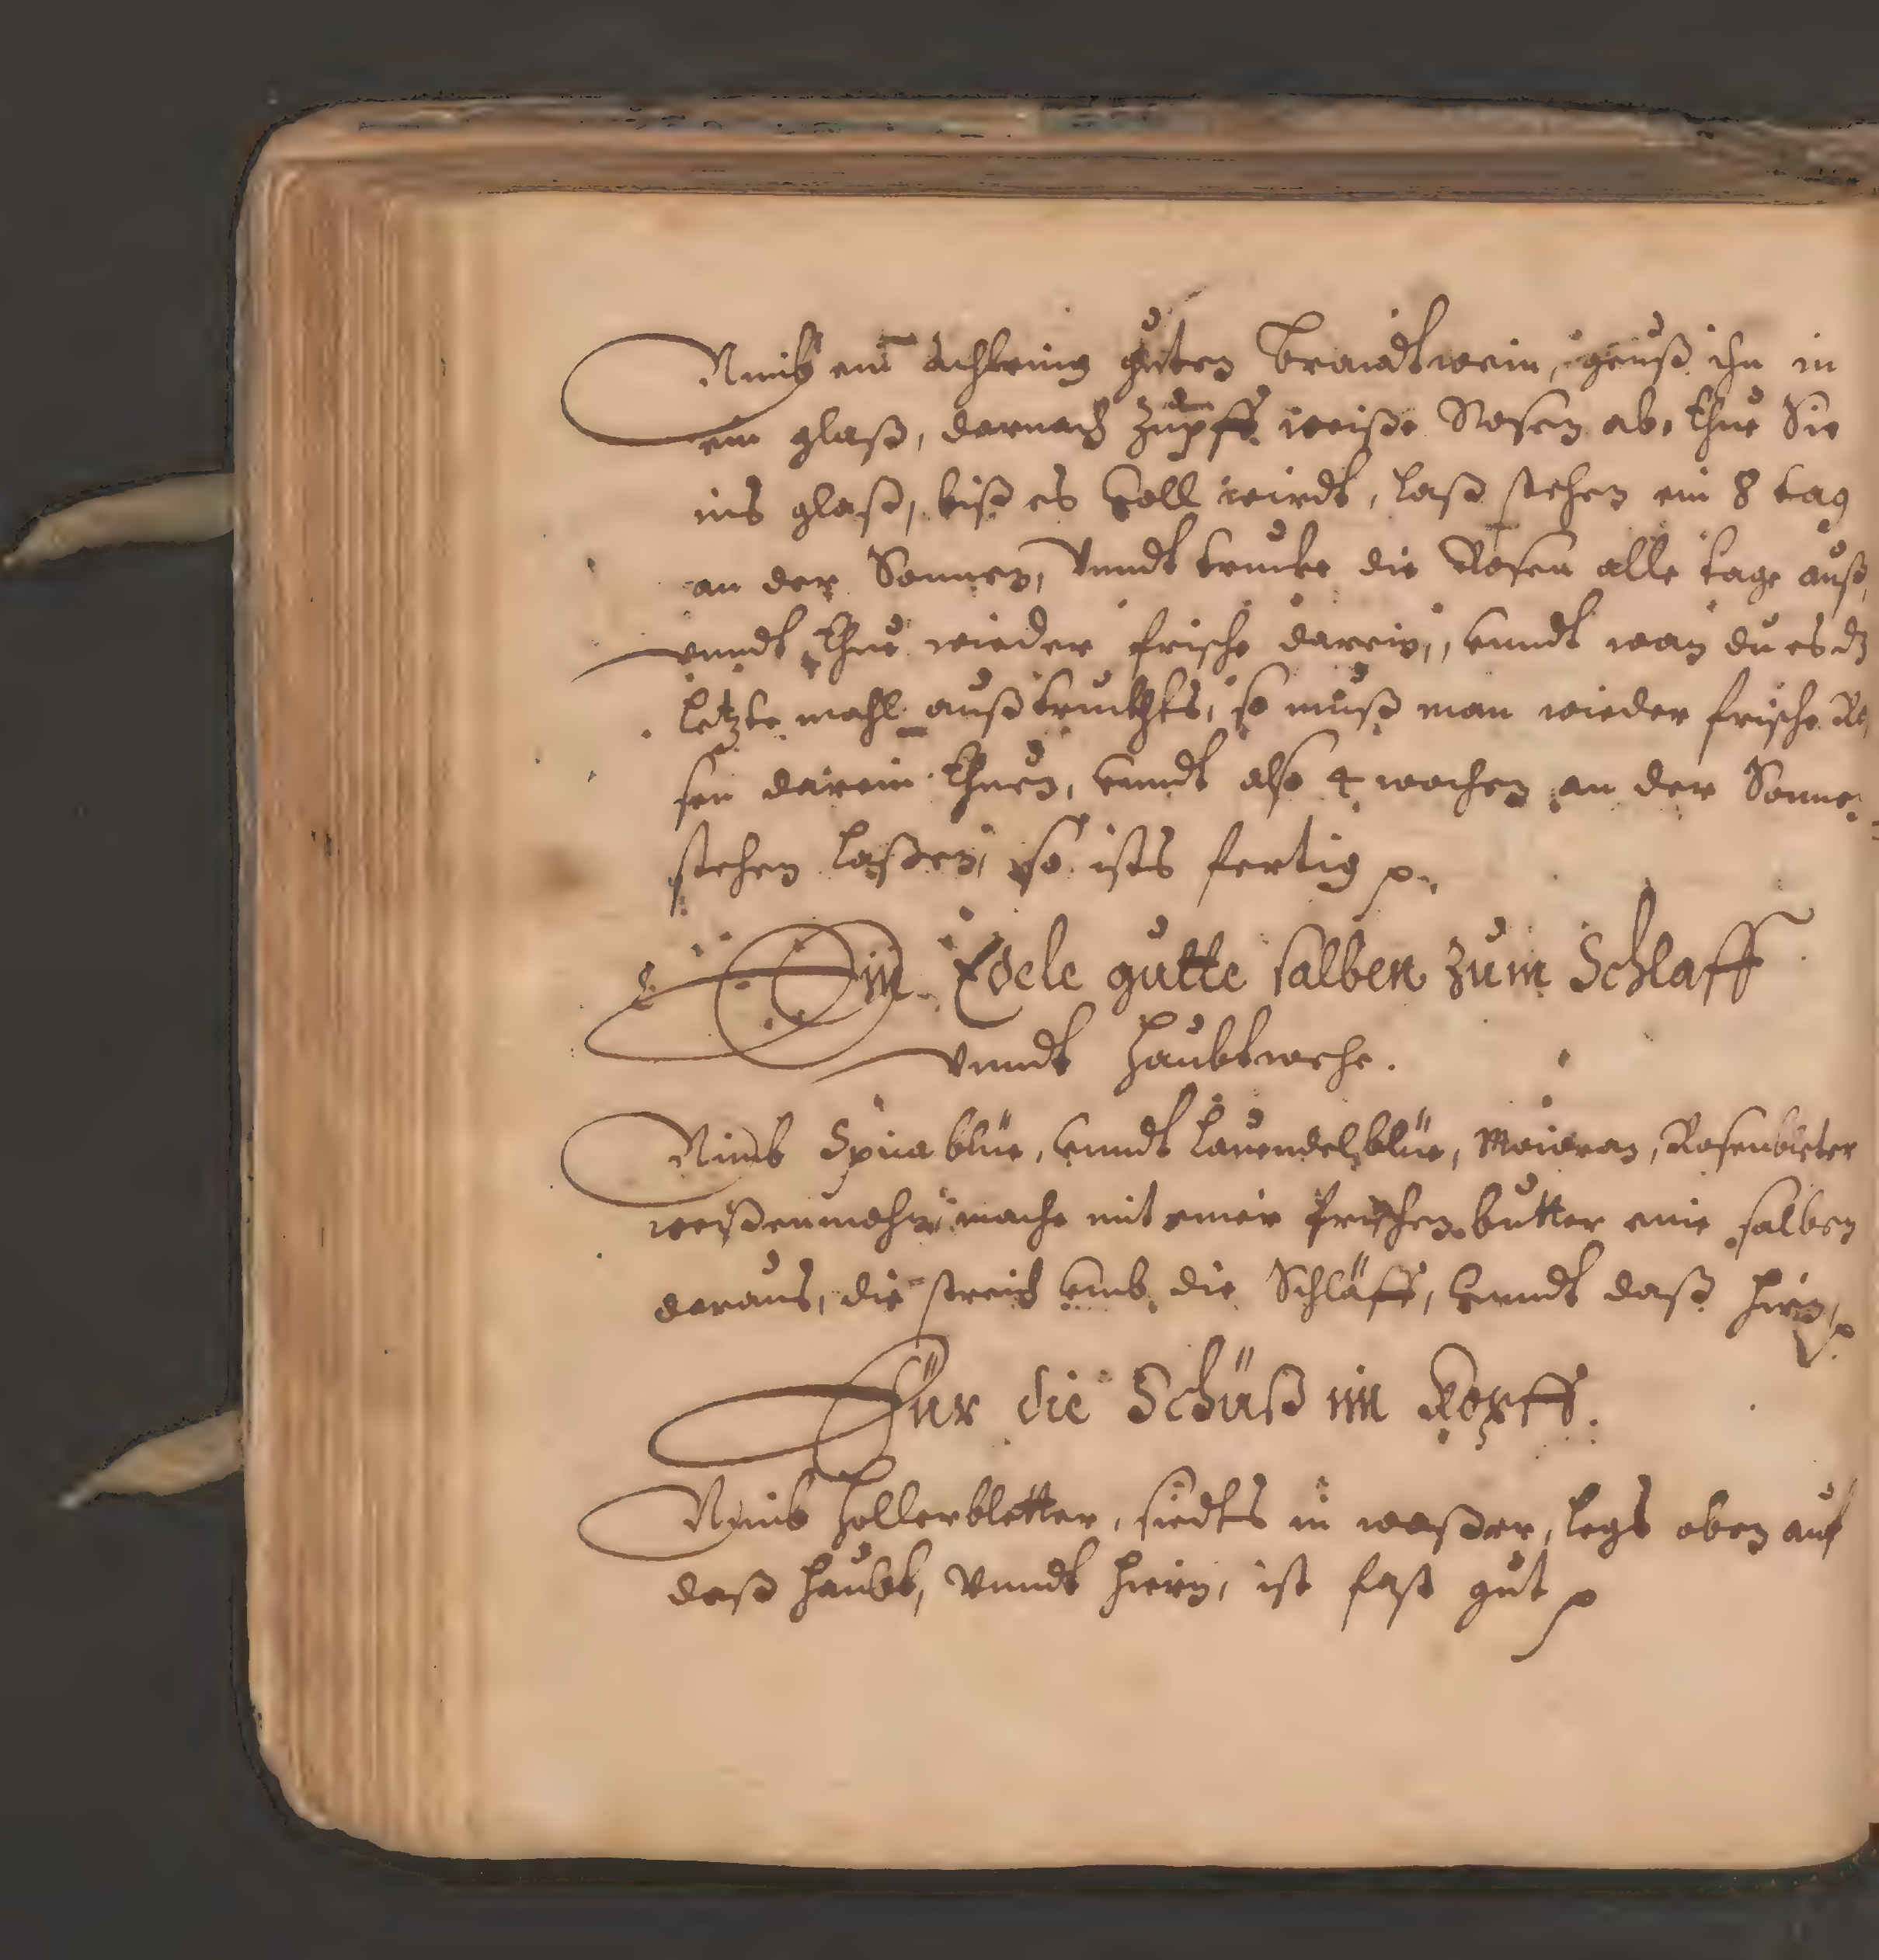 Nimb ein Achtring guten Brandtwein, geuß ihn in
ein glaß, darnach Zupff weiße Rosen ab, thue Sie
ins glaß, biß es Voll wirdt, laß stehen ein 8 tag
an der Sonnen, Vnndt trucke die Rosen alle tage auß,
vnndt thue wieder frische darein, vnndt wan du es dz
letzte mahl außtruckhts, so muß man wieder frische Ro
sen darein thuen, vnndt also 4 wochen an der Sonne
stehen laßen, so ists fertig
Ein Edele gutte salben zum Schlaff
Vnndt haubtwehe.
Nimb Spica blüe, vnndt Lauendelblüe, Maioran, Rosenbleter
mache mit einer frischen butter eine salben
daraus, die streich vmb die Schläff, Vnndt daß hirn
Für die Schüß im Kopff.
Nimb hollerbletter, siedts in waßer, legs oben auf
daß haubt, Vnndt hirn, ist fast gut